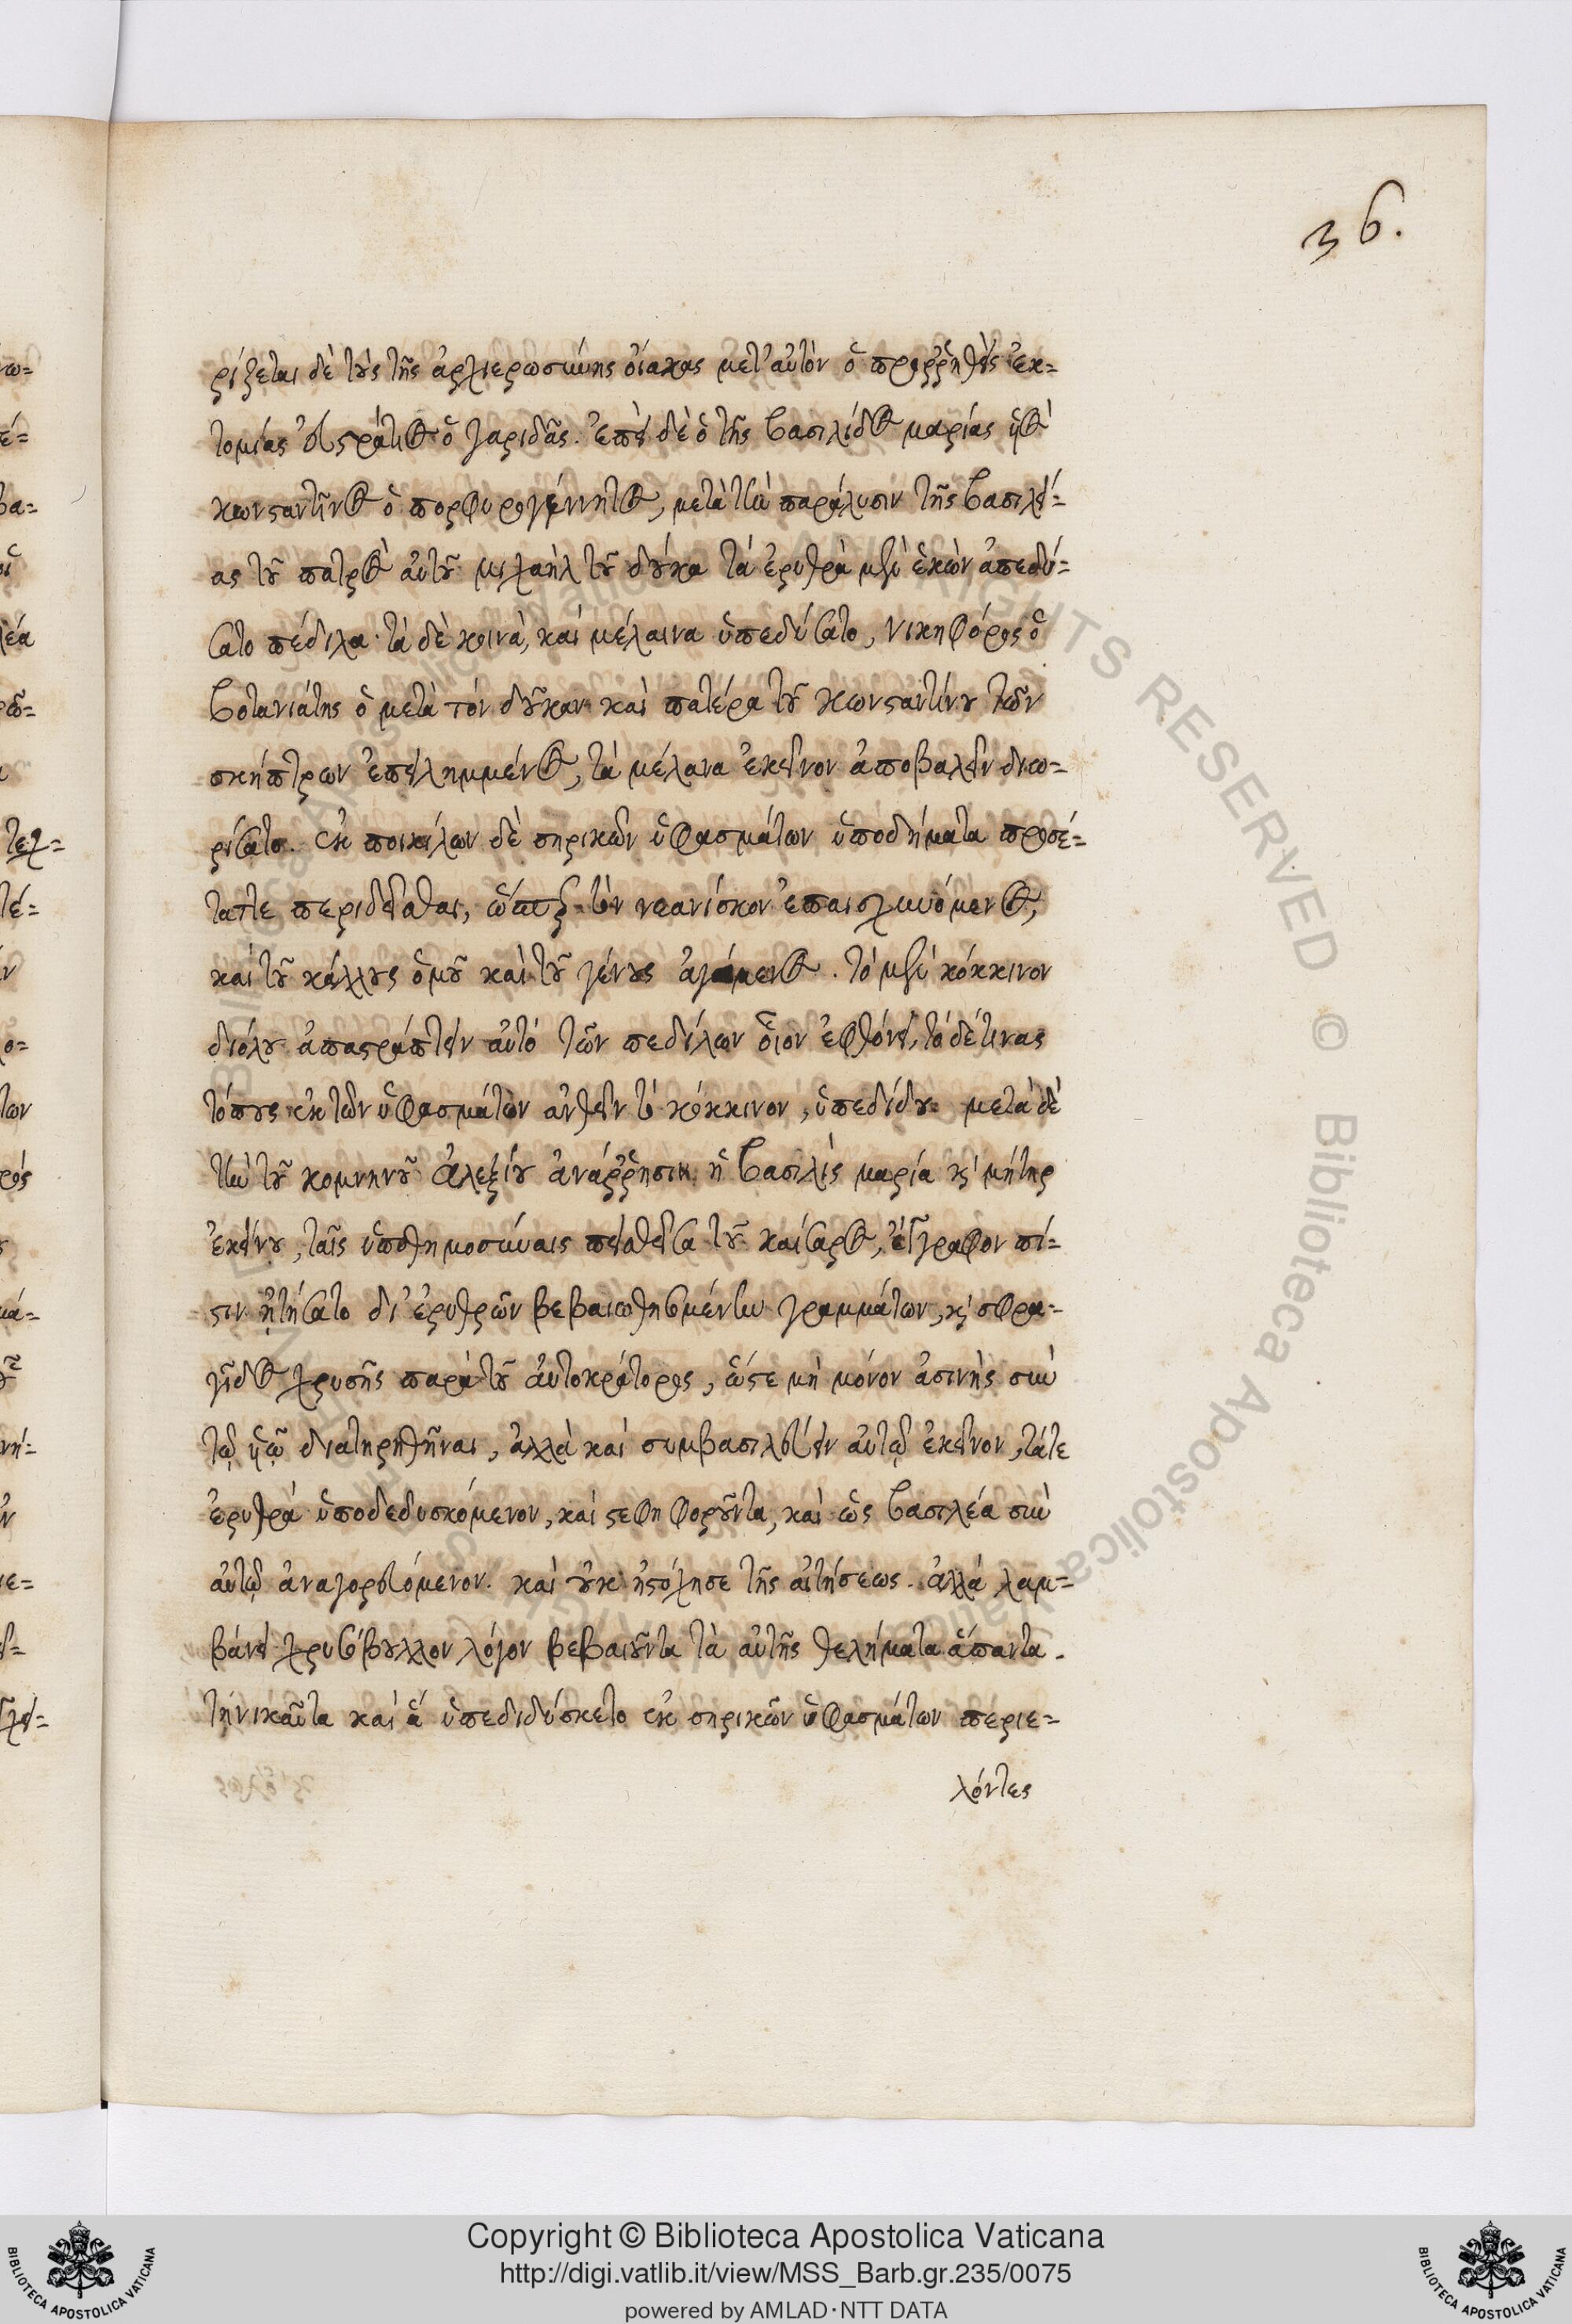 36.
ρίζεται δὲ τοὺς τῆς ἀρχιερωσύνης οἴακας μετ' αὐτὸν ὁ προῤῥηθεὶς ἐκ=
τομίας εὐστράτιος ὁ γαριδᾶς. ἐπεὶ δὲ ὁ τῆς βασιλίδος μαρίας υἱὸς
κωνσταντῖνος ὁ πορφυρογέννητος, μετὰ τὴν παράλυσιν τῆς βασιλεί=
ας τοῦ πατρὸς αὐτοῦ μιχαὴλ τοῦ δούκα τὰ ἐρυθρὰ μὲν ἑκὼν ἀπεδύ=
σατο πέδιλα· τὰ δὲ κοινὰ, καὶ μέλαινα ὑπεδύσατο, νικηφόρος ὁ
βοτανιάτης ὁ μετὰ τὸν δοῦκαν καὶ πατέρα τοῦ κωνσταντίνου τῶν
σκήπτρων ἐπειλημμένος, τὰ μέλανα ἐκεῖνον ἀποβαλεῖν διω=
ρίσατο. ἐκ ποικίλων δὲ σηρικῶν ὑφασμάτων ὑποδήματα προσέ=
ταττε περιδεῖσθαι, ὥσπερ τὸν νεανίσκον ἐπαισχυνόμενος,
καὶ τοῦ κάλλους ὁμοῦ καὶ τοῦ γένους ἀγάμενος. τὸ μὲν κόκκινον
διόλου ἀπαστράπτειν αὐτὸ τῶν πεδίλων οἷον ἐφθόνει, τὸ δέ τινας
τόπους ἐκ τῶν ὑφασμάτων ἀνθεῖν τὸ κόκκινον, ὑπεδίδου. μετὰ δὲ
τὴν τοῦ κομνηνοῦ ἀλεξίου ἀνάῤῥησιν, ἡ βασιλὶς μαρία καὶ μήτηρ
ἐκείνου, ταῖς ὑποθημοσύναις πεισθεῖσα τοῦ καίσαρος, ἔγγραφον πί=
στιν ᾐτήσατο δι' ἐρυθρῶν βεβαιωθησμένην γραμμάτων, καὶ σφρα=
γῖδος χρυσῆς παρὰ τοῦ αὐτοκράτορος, ὥστε μὴ μόνον ἀσινὴς σὺν
τῷ υἱῷ διατηρηθῆναι, ἀλλὰ καὶ συμβασιλεύειν αὐτῷ ἐκεῖνον, τά τε
ἐρυθρὰ ὑποδεδυσκόμενον, καὶ στεφηφοροῦντα, καὶ ὡς βασιλέα σὺν
αὐτῷ ἀναγορευόμενον. καὶ οὐκ ἠστόχησε τῆς αἰτήσεως. ἀλλὰ λαμ=
βάνει χρυσόβουλλον λόγον βεβαιοῦντα τὰ αὐτῆς θελήματα ἅπαντα.
τηνικαῦτα καὶ ἃ ὑπεδιδύσκετο ἐκ σηρικῶν ὑφασμάτων περιε=
λόντες
Copyright © Biblioteca Apostolica Vaticana
http://digi.vatlib.it/view/MSS_Barb.gr.235/0075
powered by AMLAD·NTT DATA